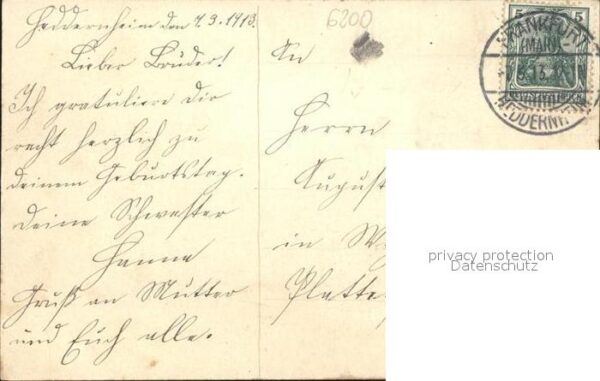 Heddernheim den 7.3.1913.
Lieber Bruder!
Ich gratuliere dir
recht herzlich zu
deinem Geburtstag.
Deine Schwester
Hanna
Gruß an Mutter
und Euch alle.
6200
An
Herrn
August
in
Platter
5 5
FRANKFURT
(MAIN)
HEDDERNHEIM
privacy protection
Datenschutz